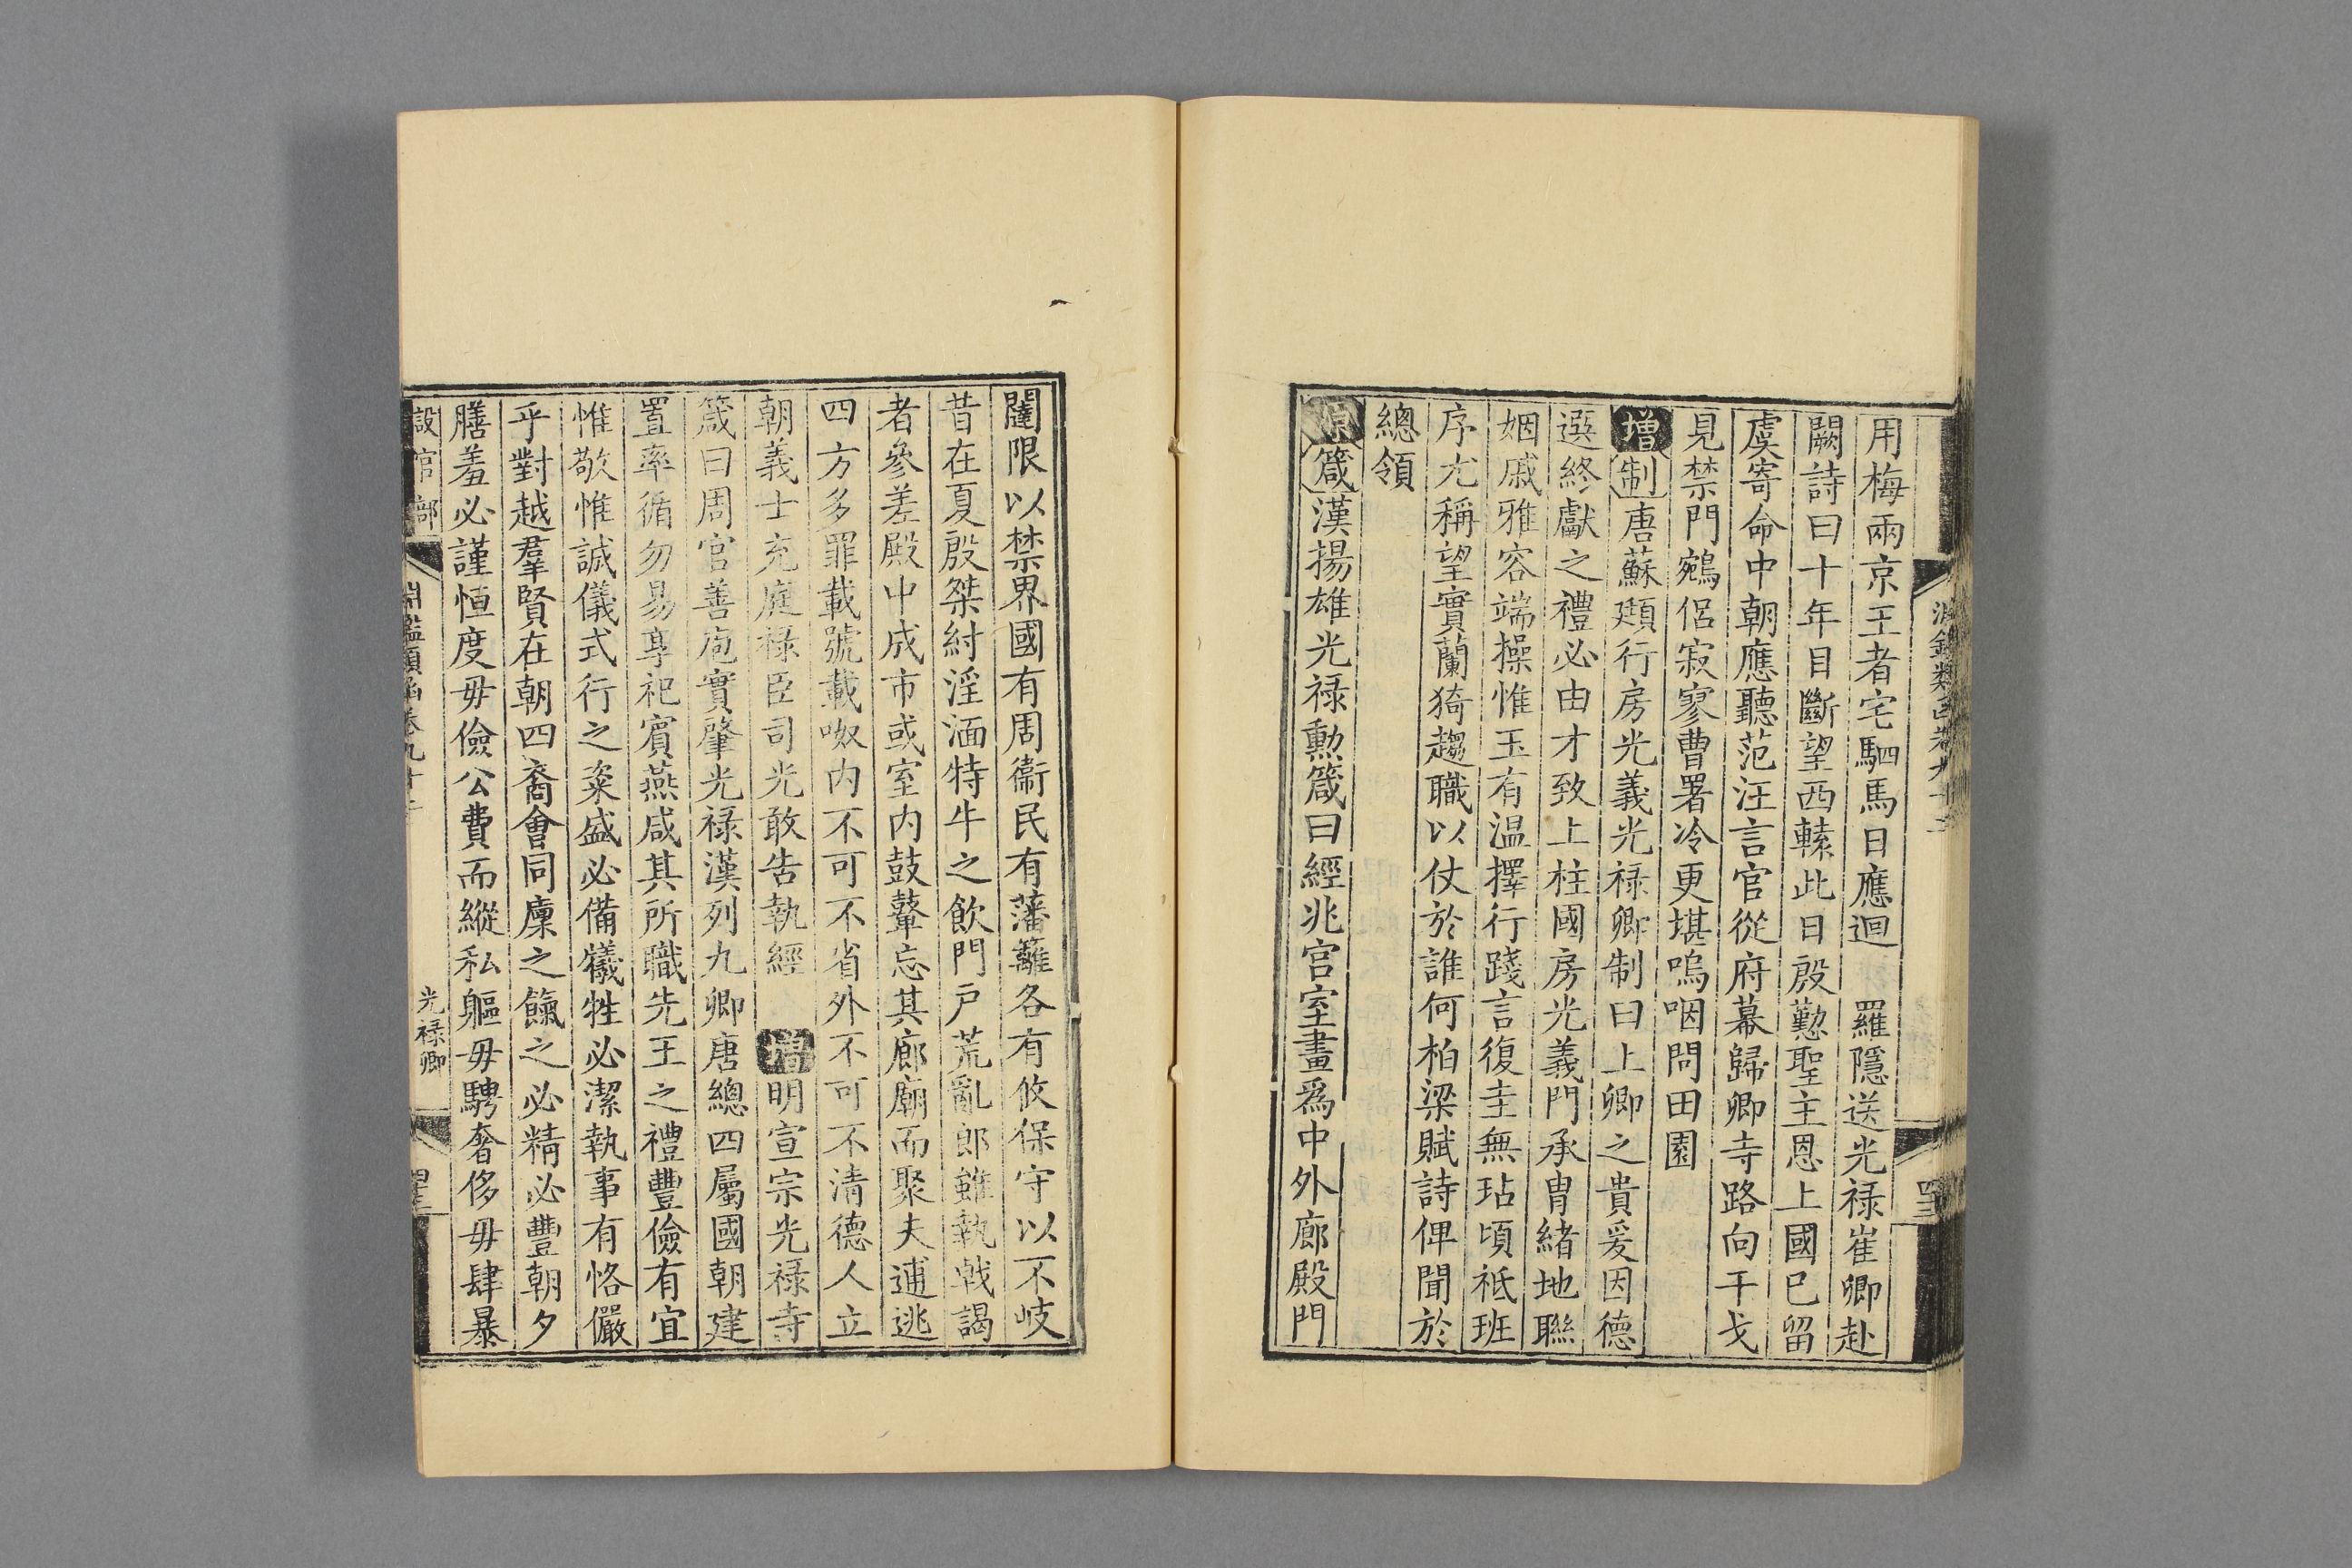 用梅兩京王者宅駟馬日應迴　羅隱送光祿崔卿赴
闕詩曰十年目斷望西轅此日殷勤聖主恩上國已留
虞寄命中朝應聽范汪言官從府幕歸卿寺路向干戈
見禁門鵷侶寂寥曹署冷更堪嗚咽問田園
增制唐蘇頲行房光義光祿卿制曰上卿之貴爰因德
選終獻之禮必由才致上柱國房光義門承胄緒地聯
姻戚雅容端操惟玉有温擇行踐言復圭無玷頃祗班
序尤稱望實蘭猗趨職以仗於誰何柏梁賦詩俾聞於
總領
原箴漢揚雄光祿勲箴曰經兆宫室畫爲中外廊殿門
闥限以禁界國有周衞民有藩籬各有攸保守以不岐
昔在夏殷桀紂淫湎特牛之飲門户荒亂郎雖執戟謁
者參差殿中成市或室内鼓鼙忘其廊廟而聚夫逋逃
四方多罪載號載呶内不可不省外不可不清德人立
朝義士充庭祿臣司光敢告執經　增明宣宗光祿寺
箴曰周官善庖實肇光祿漢列九卿唐總四屬國朝建
置率循勿易享祀賓燕咸其所職先王之禮豐儉有宜
惟敬惟誠儀式行之粢盛必備犧牲必潔執事有恪儼
乎對越羣賢在朝四裔會同廩之餼之必精必豐朝夕
膳羞必謹恒度毋儉公費而縱私軀毋騁奢侈毋肆暴
設官部　淵鑑類函卷九十二　光祿卿